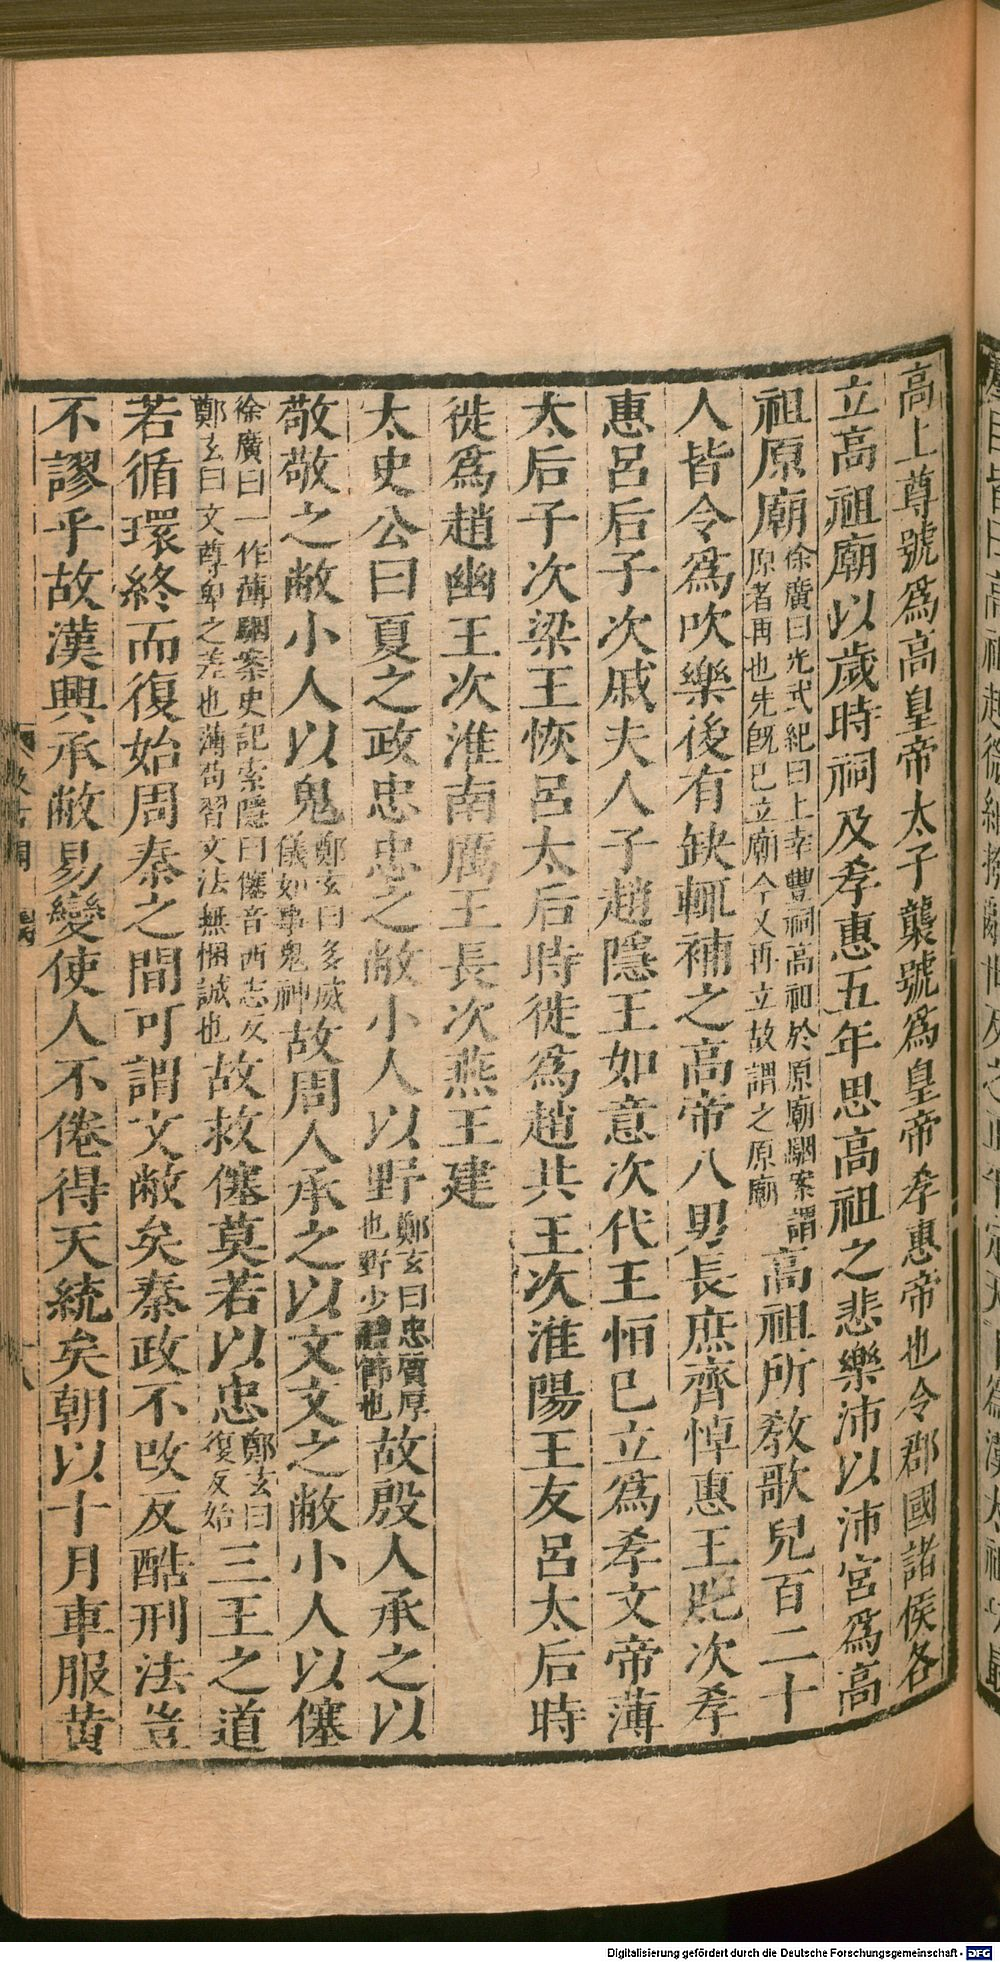 高上尊號爲高皇帝太子襲號爲皇帝孝惠帝也令郡國諸侯各
立高祖廟以歲時祠及孝惠五年思高祖之悲樂沛以沛宮爲高
祖原廟徐廣曰光武紀曰上幸豐祠高祖於原廟駰案謂原者再也先既已立廟今又再立故謂之原廟高祖所教歌兒百二十
人皆令爲吹樂後有缺輒補之高帝八男長庶齊悼惠王肥次孝
惠呂后子次戚夫人子趙隱王如意次代王恒已立爲孝文帝薄
太后子次梁王恢呂太后時徙爲趙共王次淮陽王友呂太后時
徙爲趙幽王次淮南厲王長次燕王建
太史公曰夏之政忠忠之敝小人以野鄭玄曰忠質厚也野少禮節也故殷人承之以
敬敬之敝小人以鬼鄭玄曰多威儀如事鬼神故周人承之以文文之敝小人以僿
徐廣曰一作薄駰案史記索隱曰僿音西志反鄭玄曰文尊卑之差也薄苟習文法無悃誠也故救僿莫若以忠鄭玄曰復反始三王之道
若循環終而復始周秦之間可謂文敝矣秦政不改反酷刑法豈
不謬乎故漢興承敝易變使人不倦得天統矣朝以十月車服黃
Digitalisierung gefördert durch die Deutsche Forschungsgemeinschaft - DFG